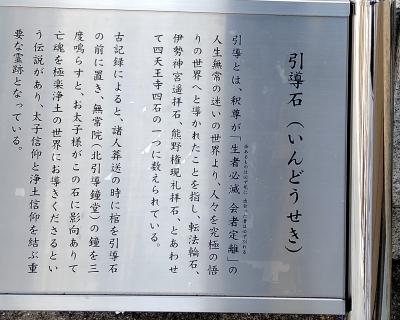 引導石（いんどうせき）
引導とは、釈尊が「生者必滅 会者定離」の
人生無常の迷いの世界より、人々を究極の悟
りの世界へと導かれたことを指し、転法輪石、
伊勢神宮遥拝石、熊野権現礼拝石、とあわせ
て四天王寺四石の一つに数えられている。
古記録によると、諸人葬送の時に棺を引導石
の前に置き、無常院（北引導鐘堂）の鐘を三
度鳴らすと、お太子様がこの石に影向ありて
亡魂を極楽浄土の世界にお導きくださるとい
う伝説があり、太子信仰と浄土信仰を結ぶ重
要な霊跡となっている。